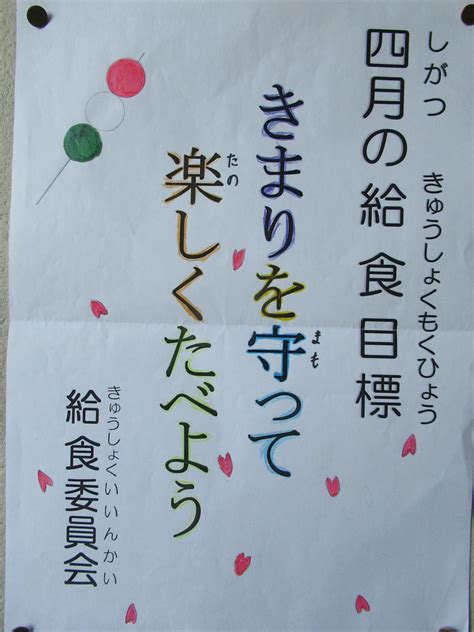 四月の給食目標
しがつ きゅうしょくもくひょう
きまりを守って
まも
楽しくたべよう
たの
給食委員会
きゅうしょくいいんかい